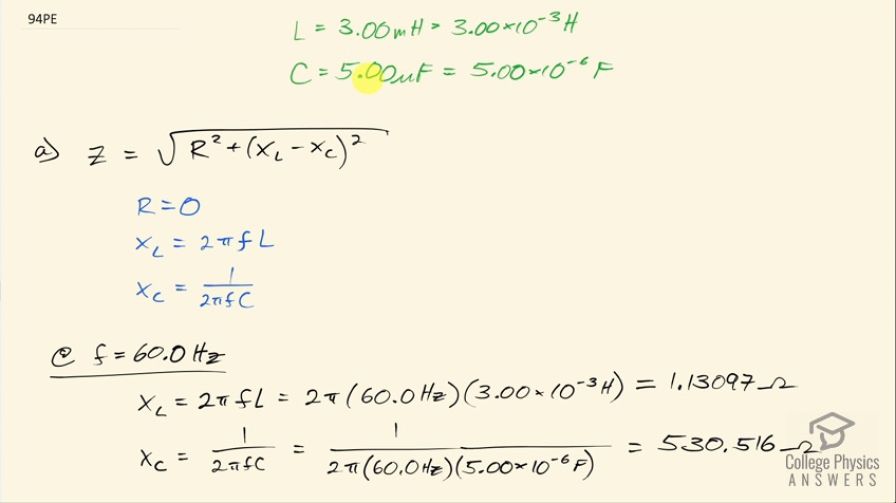 94PE
L = 3.00mH = 3.00×10⁻³H
C = 5.00μF = 5.00×10⁻⁶F
a) Z = √(R² + (X_L - X_C)²)
R = 0
X_L = 2πfL
X_C = 1/(2πfC)
@ f = 60.0Hz
X_L = 2πfL = 2π(60.0Hz)(3.00×10⁻³H) = 1.13097Ω
X_C = 1/(2πfC) = 1/(2π(60.0Hz)(5.00×10⁻⁶F)) = 530.516Ω
College Physics
ANSWERS